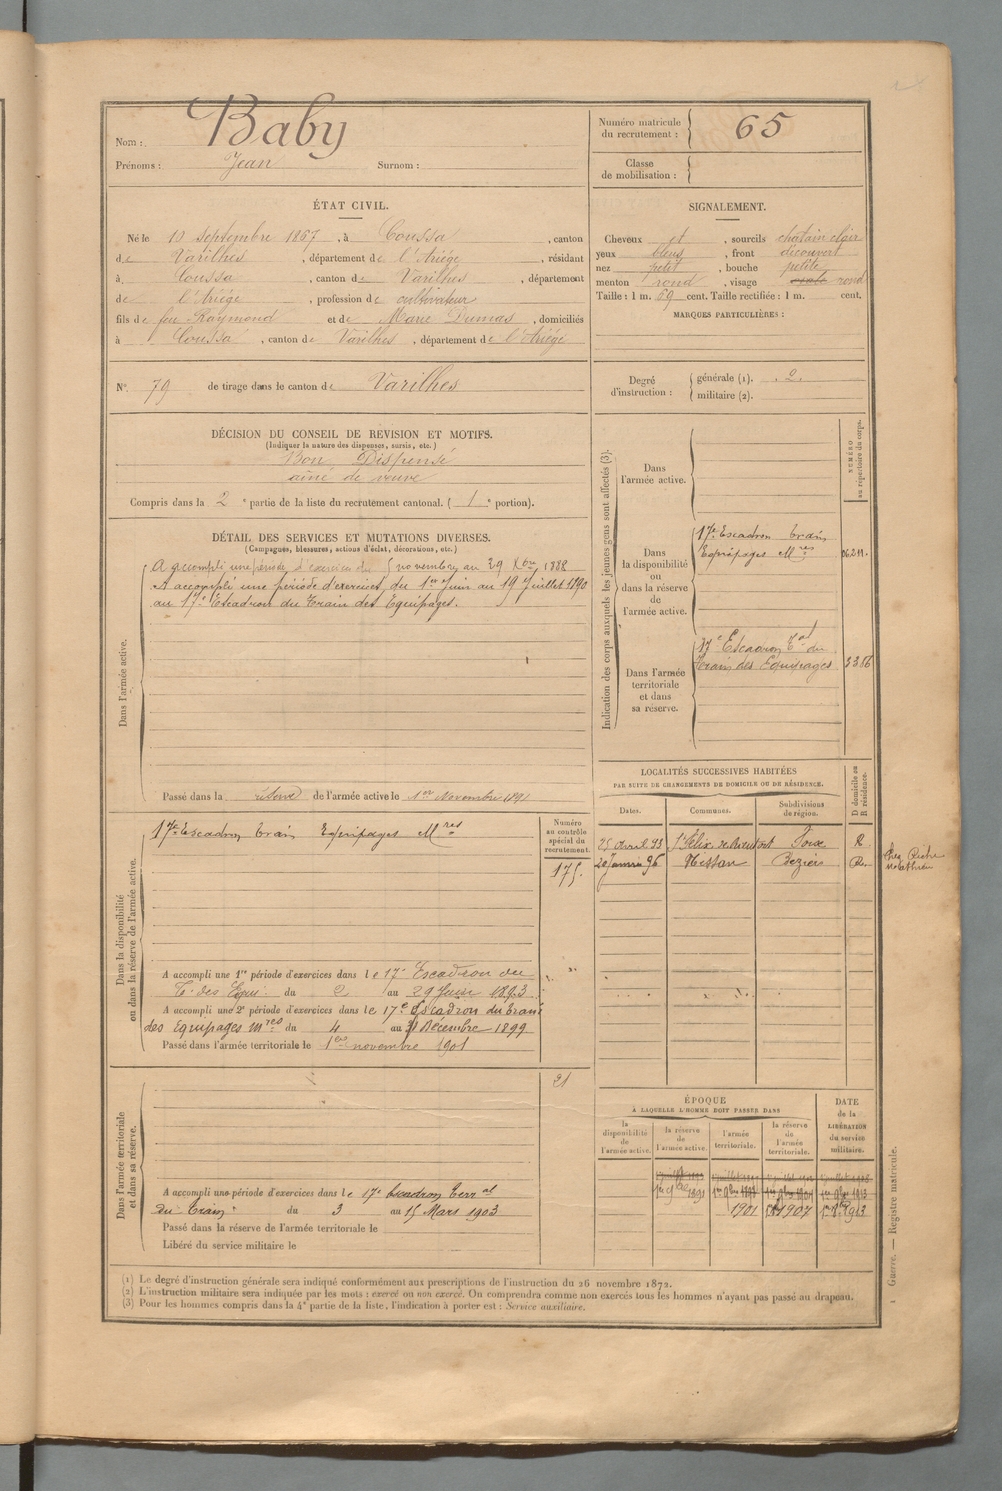 Nom : Baby
Prénoms : Jean Surnom :
Numéro matricule du recrutement : 65
Classe de mobilisation :
ÉTAT CIVIL.
Né le 10 septembre 1867, à Coussa, canton
de Varilhes, département de l'Ariège, résidant
à Coussa, canton de Varilhes, département
de l'Ariège, profession de cultivateur
fils de feu Raymond et de Marie Dumas, domiciliés
à Coussa, canton de Varilhes, département de l'Ariège
SIGNALEMENT.
Cheveux et, sourcils chatain clair
yeux bleus, front découvert
nez petit, bouche petite
menton rond, visage rond
Taille : 1 m. 69 cent. Taille rectifiée : 1 m. cent.
MARQUES PARTICULIÈRES :
N° 79 de tirage dans le canton de Varilhes
Degré d'instruction : générale (1). 2.
militaire (2).
DÉCISION DU CONSEIL DE REVISION ET MOTIFS.
(Indiquer la nature des dispenses, sursis, etc.)
Bon Dispensé
ainé de veuve
Compris dans la 2e partie de la liste du recrutement cantonal. ( 1e portion).
DÉTAIL DES SERVICES ET MUTATIONS DIVERSES.
(Campagnes, blessures, actions d'éclat, décorations, etc.)
Dans l'armée active.
A accompli une période d'exercices du 5 novembre au 29 Xbre 1888
A accompli une période d'exercices du 1er Juin au 19 Juillet 1890
au 17e Escadron du Train des Equipages.
Passé dans la réserve de l'armée active le 1er Novembre 1891
Indication des corps auxquels les jeunes gens sont affectés (3).
NUMÉRO au répertoire du corps.
Dans l'armée active.
Dans la disponibilité ou dans la réserve de l'armée active.
17e Escadron train
Equipages Mres
Dans l'armée territoriale et dans sa réserve.
17e Escadron Tal du
Train des Equipages 3366
Dans la disponibilité ou dans la réserve de l'armée active.
17e Escadron train Equipages Mres
Numéro au contrôle spécial du recrutement.
175.
A accompli une 1re période d'exercices dans le 17e Escadron du
T. des Equi. du 2 au 29 Juin 1893
A accompli une 2e période d'exercices dans le 17e Escadron du train
des Equipages mres du 4 au 31 Décembre 1899
Passé dans l'armée territoriale le 1er novembre 1901
LOCALITÉS SUCCESSIVES HABITÉES
PAR SUITE DE CHANGEMENTS DE DOMICILE OU DE RÉSIDENCE.
Dates. Communes. Subdivisions de région. D domicile ou R résidence.
25 avril 93 St Félix Foix R
20 Janvier 96 Béziers R.
Dans l'armée territoriale et dans sa réserve.
21
A accompli une période d'exercices dans le 17e Escadron Terral
du Train du 3 au 15 Mars 1903
Passé dans la réserve de l'armée territoriale le
Libéré du service militaire le
ÉPOQUE
À LAQUELLE L'HOMME DOIT PASSER DANS
la disponibilité de l'armée active.
la réserve de l'armée active.
l'armée territoriale.
la réserve de l'armée territoriale.
DATE de la LIBÉRATION du service militaire.
1er 9bre 1891
1901 1907
(1) Le degré d'instruction générale sera indiqué conformément aux prescriptions de l'instruction du 26 novembre 1872.
(2) L'instruction militaire sera indiquée par les mots : exercé ou non exercé. On comprendra comme non exercés tous les hommes n'ayant pas passé au drapeau.
(3) Pour les hommes compris dans la 4e partie de la liste, l'indication à porter est : Service auxiliaire.
1 Guerre. — Registre matricule.